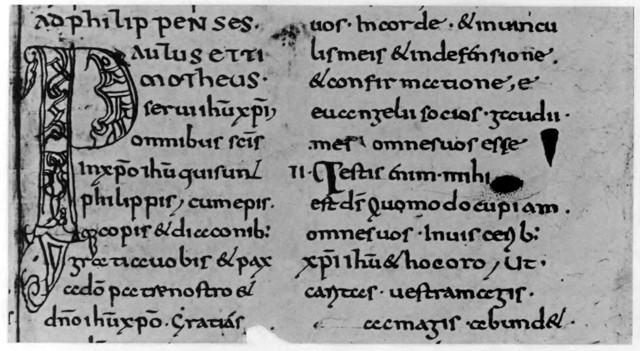 AD PHILIPPENSES.
PAULUS ET TI
MOTHEUS·
servi ihū xpī,
omnibus scīs
in xpō ihū qui sunt
philippis, cum epis
copis & diaconib:
gratia vobis & pax
a dō patre nostro &
dnō ihū xpō. Gratiās
vos· In corde· & in vincu
lis meis & in defensione,
& confirmatione, e
euangelii socios· gaudii·
mei omnes vos esse
II· Testis enim mihi
est dś Quomodo cupiam.
omnes vos· In visceribus:
xpī ihū & hoc oro, Ut·
caritas· vestra magis·
ac magis· abund&·